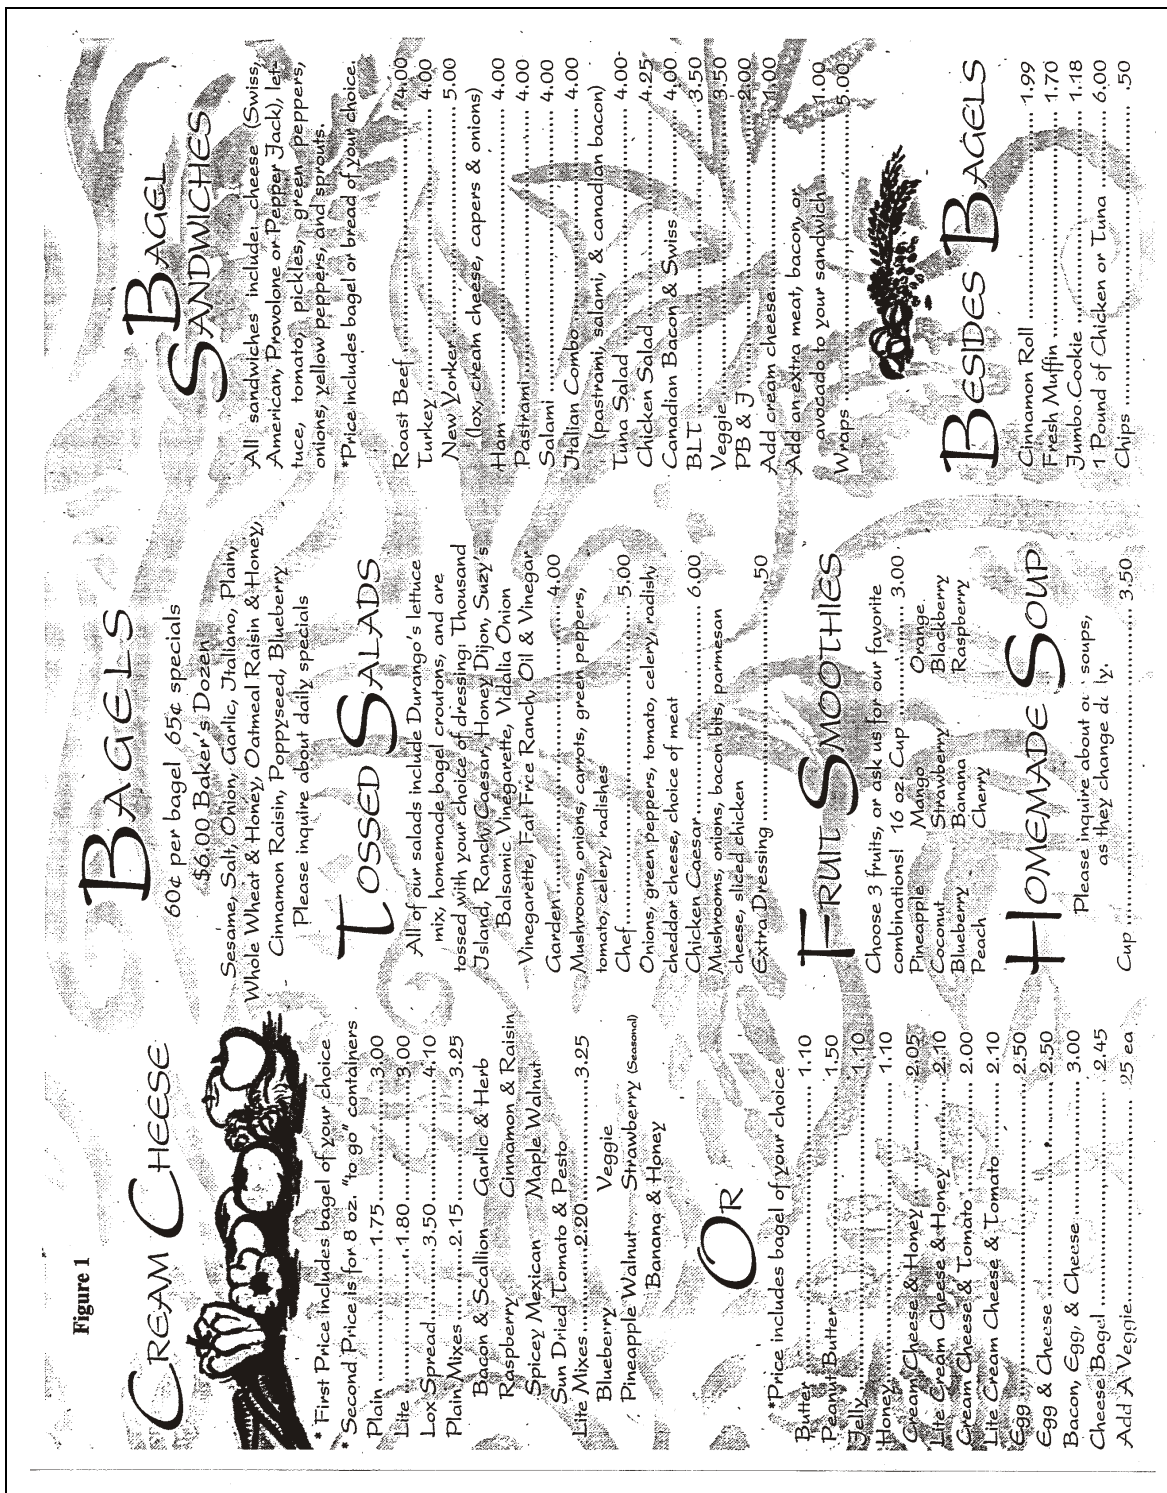 Figure 1
CREAM CHEESE
*First Price includes bagel of your choice
*Second Price is for 8 oz. "to go" containers
Plain ........ 1.75 ........ 3.00
Lite ........ 1.80 ........ 3.00
Lox Spread ........ 3.50 ........ 4.10
Plain Mixes ........ 2.15 ........ 3.25
Bacon & Scallion Garlic & Herb
Raspberry Cinnamon & Raisin
Spicey Mexican Maple Walnut
Sun Dried Tomato & Pesto
Lite Mixes ........ 2.20 ........ 3.25
Blueberry Veggie
Pineapple Walnut Strawberry (Seasonal)
Banana & Honey
OR
*Price includes bagel of your choice
Butter ........ 1.10
Peanut Butter ........ 1.50
Jelly ........ 1.10
Honey ........ 1.10
Cream Cheese & Honey ........ 2.05
Lite Cream Cheese & Honey ........ 2.10
Cream Cheese & Tomato ........ 2.00
Lite Cream Cheese & Tomato ........ 2.10
Egg ........ 2.50
Egg & Cheese ........ 2.50
Bacon, Egg, & Cheese ........ 3.00
Cheese Bagel ........ 2.45
Add A Veggie ........ 25 ea
BAGELS
60¢ per bagel 65¢ specials
$6.00 Baker's Dozen
Sesame, Salt, Onion, Garlic, Italiano, Plain,
Whole Wheat & Honey, Oatmeal Raisin & Honey,
Cinnamon Raisin, Poppyseed, Blueberry
Please inquire about daily specials
TOSSED SALADS
All of our salads include Durango's lettuce
mix, homemade bagel croutons, and are
tossed with your choice of dressing: Thousand
Island, Ranch, Caesar, Honey Dijon, Suzy's
Balsamic Vinegarette, Vidalia Onion
Vinegarette, Fat Free Ranch, Oil & Vinegar
Garden ........ 4.00
Mushrooms, onions, carrots, green peppers,
tomato, celery, radishes
Chef ........ 5.00
Onions, green peppers, tomato, celery, radish,
cheddar cheese, choice of meat
Chicken Caesar ........ 6.00
Mushrooms, onions, bacon bits, parmesan
cheese, sliced chicken
Extra Dressing ........ .50
FRUIT SMOOTHIES
Choose 3 fruits, or ask us for our favorite
combinations! 16 oz. Cup ........ 3.00
Pineapple Mango Orange
Coconut Strawberry Blackberry
Blueberry Banana Raspberry
Peach Cherry
HOMEMADE SOUP
Please inquire about soups,
as they change
Cup ........ 3.50
BAGEL
SANDWICHES
All sandwiches include: cheese (Swiss,
American, Provolone or Pepper Jack), let-
tuce, tomato, pickles, green peppers,
onions, yellow peppers, and sprouts.
*Price includes bagel or bread of your choice.
Roast Beef ........ 4.00
Turkey ........ 4.00
New Yorker ........ 5.00
(lox, cream cheese, capers & onions)
Ham ........ 4.00
Pastrami ........ 4.00
Salami ........ 4.00
Italian Combo ........ 4.00
(pastrami, salami, & canadian bacon)
Tuna Salad ........ 4.00
Chicken Salad ........ 4.25
Canadian Bacon & Swiss ........ 4.00
BLT ........ 3.50
Veggie ........ 3.50
PB & J ........ 2.00
Add cream cheese ........ 1.00
Add an extra meat, bacon, or
avocado to your sandwich ........ 1.00
Wraps ........ 5.00
BESIDES BAGELS
Cinnamon Roll ........ 1.99
Fresh Muffin ........ 1.70
Jumbo Cookie ........ 1.18
1 Pound of Chicken or Tuna ........ 6.00
Chips ........ .50